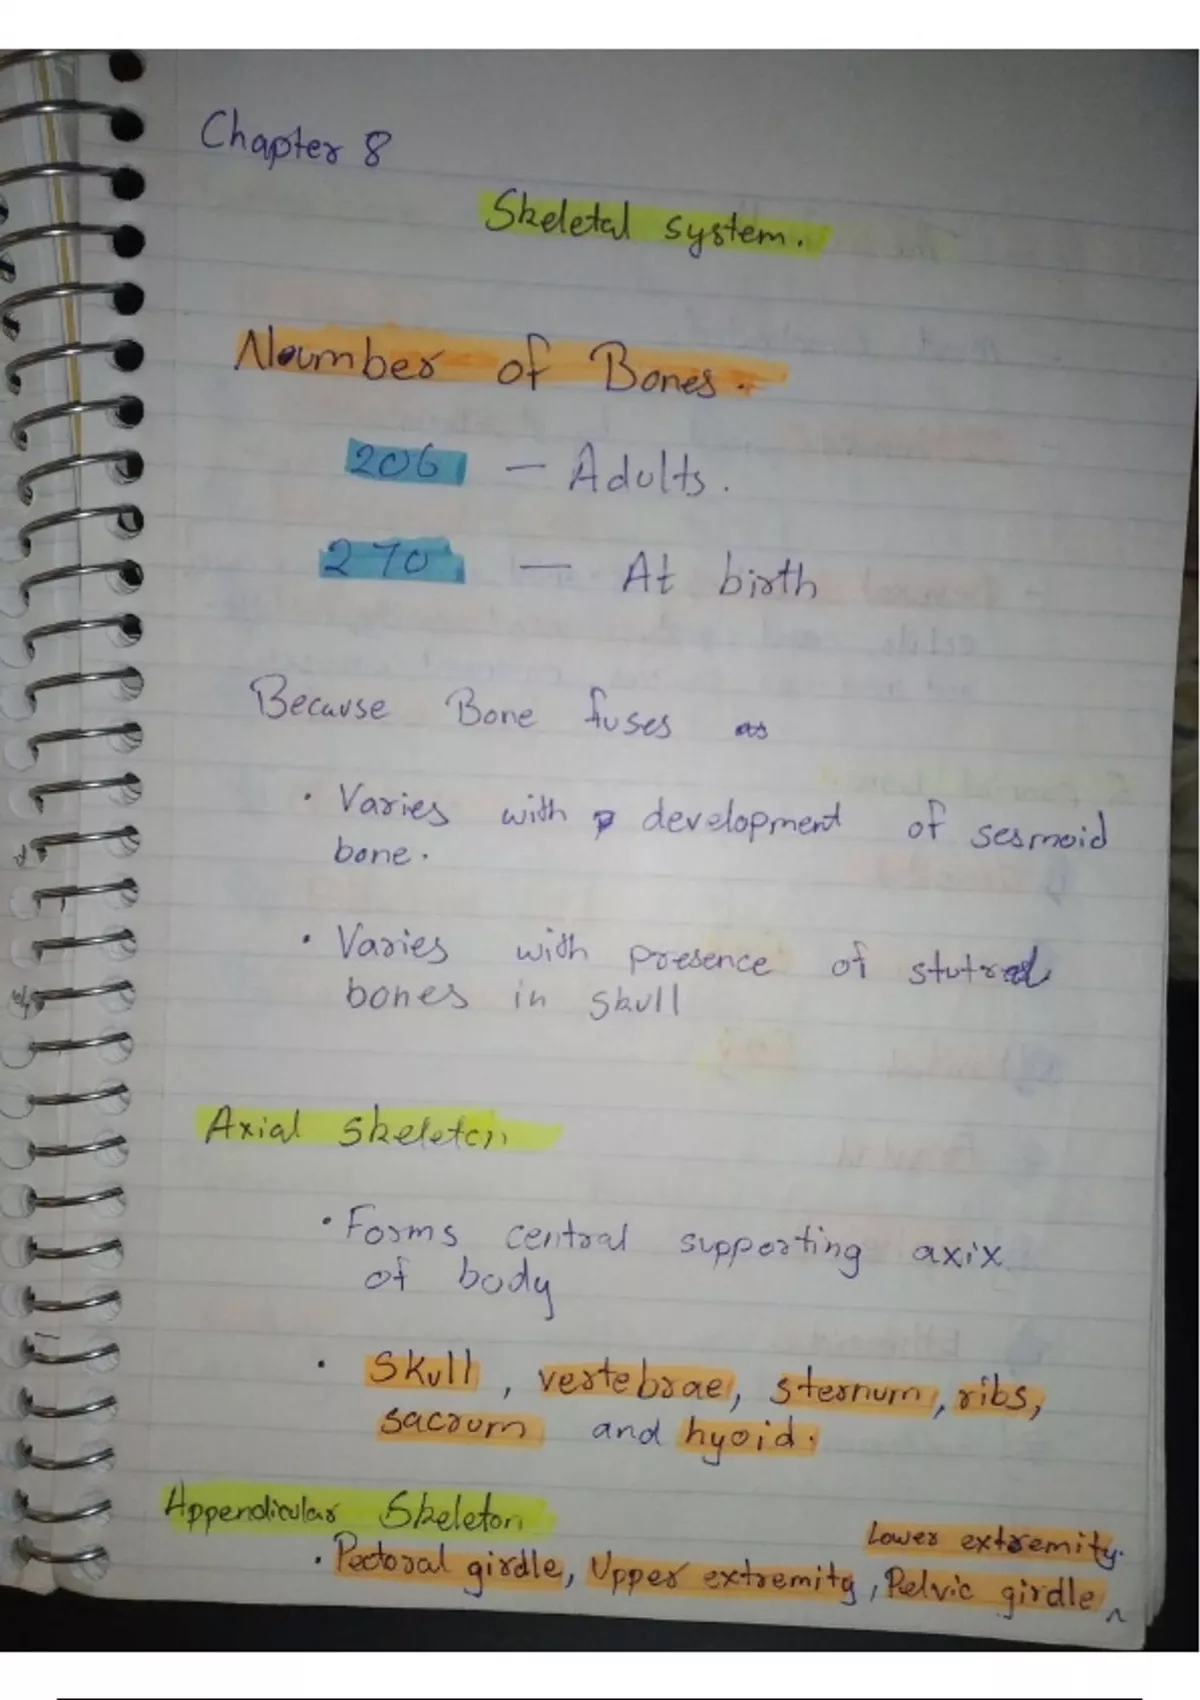 Chapter 8
Skeletal system.
Noumber of Bones.
206 — Adults.
270 — At birth
Because Bone fuses as
• Varies with development of sesmoid
bone.
• Varies with presence of
bones in skull
Axial skeleton
• Forms central supporting axix
of body
• Skull, vertebrae, sternum, ribs,
sacrum and hyoid.
Appendicular Skeleton
Lower extremity.
• Pectoral girdle, Upper extremity, Pelvic girdle ^